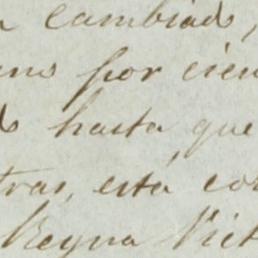 cambiado,
por cien
hasta que
tras, esta co
Reyna Vict